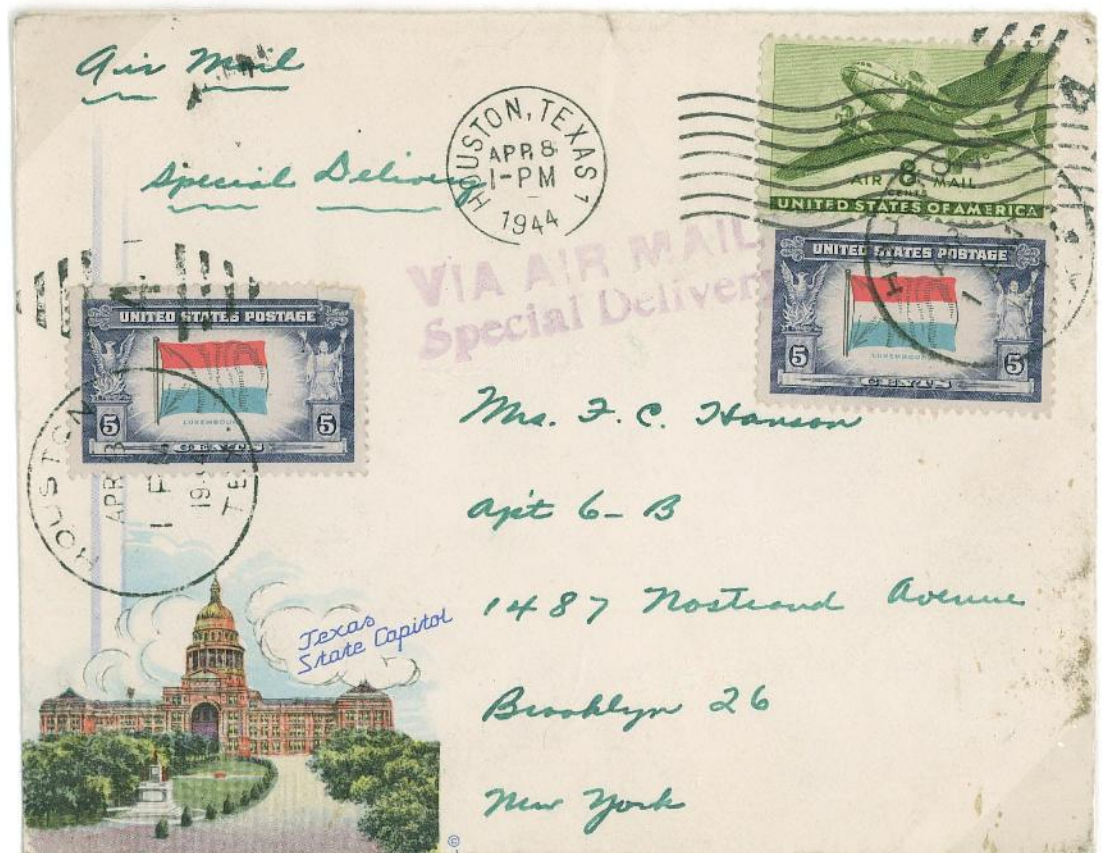 Air Mail
Special Delivery
HOUSTON, TEXAS 1
APR 8
1-PM
1944
AIR 8 MAIL
CENTS
UNITED STATES OF AMERICA
VIA AIR MAIL
Special Delivery
UNITED STATES POSTAGE
LUXEMBOURG
5 5
CENTS
UNITED STATES POSTAGE
LUXEMBOURG
5 5
CENTS
HOUSTON
APR 8
1 PM
1944
TEX
Mrs. F. C. Hanson
Apt 6-B
1487 Nostrand Avenue
Brooklyn 26
New York
Texas
State Capitol
©